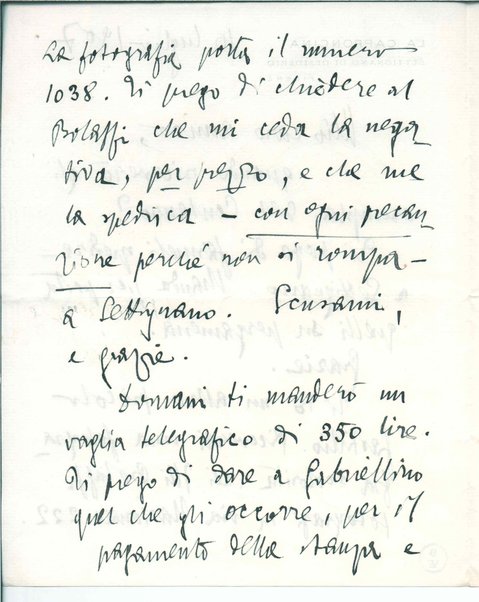 La fotografia porta il numero
1038. Ti prego di chiedere al
che mi ceda la nega-
tiva, per prezzo, e che me
la spedisca – con ogni precau-
zione perché non si rompa –
a Settignano. Scusami,
e grazie.
Domani ti manderò un
vaglia telegrafico di 350 lire.
Ti prego di dare a Gabriellino
quel che gli occorre, per il
pagamento della stampa e